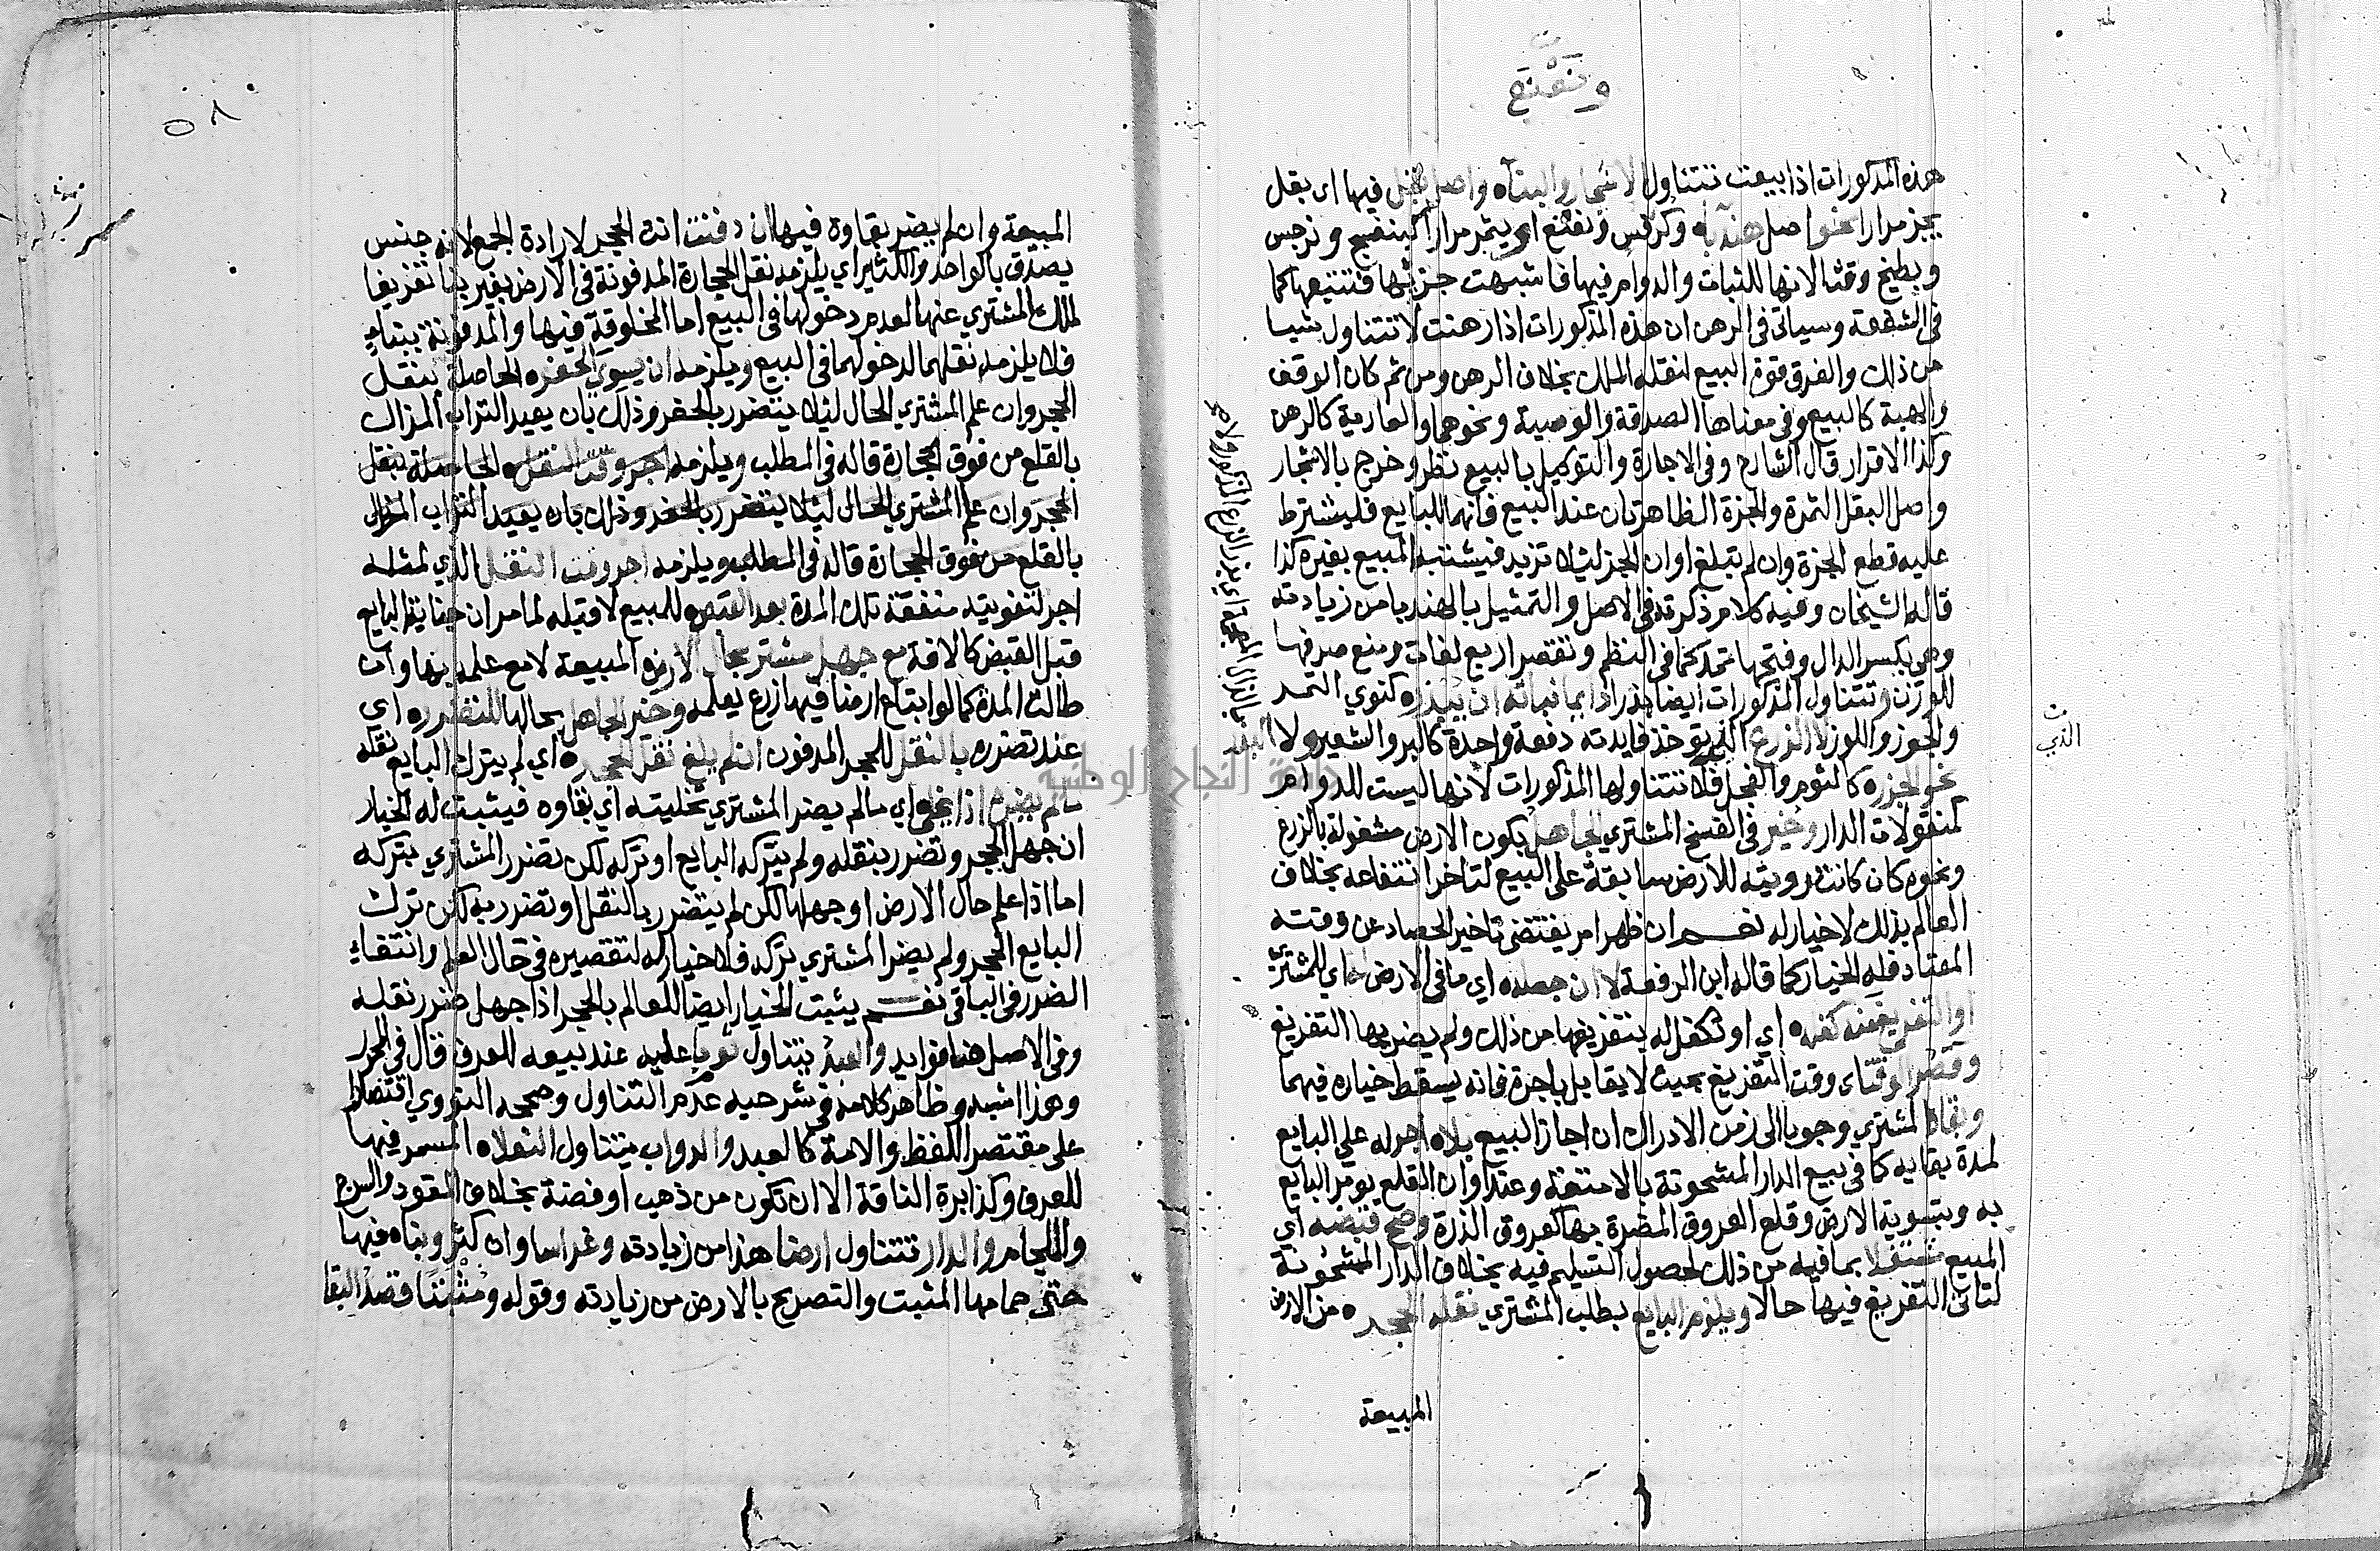 ونعنع
هذه المذكورات اذا بيعت تتناول الاشجار والبناه واصل بقل فيها اى بقل
يجز مرارا نحو اصل هندباه وكرفس ونعنع او يثمر مرارا كبنفسج ونرجس
وبطيخ وقثا لانها للثبات والدوام فيها فاشبهت جزئها فتتبعها كما
فى الشفعة وسياتى فى الرهن ان هذه المذكورات اذا رهنت لا تتناول شيا
من ذلك والفرق قوة البيع لنقله الملك بخلاف الرهن ومن ثم كان الوقف
والهبة كالبيع وفى معناها الصدقة والوصية ونحوهما والعارية كالرهن
وكذا الاقرار قال الشارح وفى الاجارة والتوكيل بالبيع نظر وخرج بالاشجار
واصل البقل الثمرة والجزة الظاهرتان عند البيع فانهما للبايع فليشترط
عليه قطع الجزة وان لم تبلغ اوان الجز ليلا تزيد فيشتبه المبيع بغيره كذا
قاله الشيخان وفيه كلام ذكرته فى الاصل والتمثيل بالهندبا من زيادته
وهى بكسر الدال وفتحها تمد كما فى النظم وتقصر اربع لغات ومنع صرفها
للوزن وتتناول المذكورات ايضا بذرا دايما نباته ان يبذره كنوي التمر
والجوز واللوز لا الزرع الذي توخذ فايدته دفعة واحدة كالبر والشعير ولا
نحو الجزره كالثوم والفجل فلا تتناولها المذكورات لانها ليست للدوام
كمنقولات الدار وخير فى الفسخ المشتري الجاهل بكون الارض مشغولة بالزرع
ونحوه كان كانت رويته للارض سابقة على البيع لتاخر انتفاعه بخلاف
العالم بذلك لا خيار له نعم ان ظهر امر يقتضى تاخير الحصاد عن وقته
المعتاد فله الخيار كما قاله ابن الرفعة لا ان جعله اى ما فى الارض اى للمشتري
او التفريغ منه كفله اي او تكفل له بتفريغها من ذلك ولم يضر بها التفريغ
وقصر الوقت اى وقت التفريغ بحيث لا يقابل باجرة فانه يسقط خياره فيهما
وبقاه المشتري وجوبا الى زمن الادراك ان اجاز البيع بلاه اجرله علي البايع
لمدة بقايه كما فى بيع الدار المشحونة بالامتعة وعند اوان القلع يومر البايع
به وبتسوية الارض وقلع العروق المضرة بها كعروق الذرة وصح قبضه اي
المبيع مشتغلا بما فيه من ذلك لحصول التسليم فيه بخلاف الدار المشحونة
لتاتى التفريغ فيها حالا ويلزم البايع بطلب المشتري نقله الحجره من الارض
المبيعة
الذي
٥٨
المبيعة وان لم يضر بقاوه فيها ان دفنت انت الحجر لارادة الجمع لانه جنس
يصدق بالواحد والكثير اي يلزمه نقل الحجارة المدفونة فى الارض بغير بنا تفريغا
لملك المشتري عنها لعدم دخولها فى البيع اما المخلوقة فيها والمدفونة ببناء
فلا يلزمه نقلهما لدخولهما فى البيع ويلزمه ان يسوي الحفره الحاصلة بنقل
الحجر وان علم المشتري الحال ليلا يتضرر بالحفر وذلك بان يعيد التراب المزال
بالقلع من فوق الحجارة قاله فى المطلب ويلزمه اجر وقت النقله الحاصلة بنقل
الحجر وان علم المشتري الحال ليلا يتضرر بالحفر وذلك بان يعيد التراب المزال
بالقلع من فوق الحجارة قاله فى المطلب ويلزمه اجر وقت النقل الذي لمثله
اجر لتفويته منفعة تلك المدة بعد القبض للمبيع لا قبله لما مر ان جناية البايع
قبل القبض كالافة مع جهل مشتر بحال الارض المبيعة لا مع علمه بها وان
طالت المدة كما لو ابتاع ارضا فيها زرع يعلمه وخير الجاهل بحالها للتضرره اي
عند تضرره بالنقل للحجر المدفون ان لم يلغ نقل الحجره اي لم يترك البايع نقله
ما لم يضر اذا بقى اي ما لم يضر المشتري تخليته اي بقاوه فيثبت له الخيار
ان جهل الحجر وتضرر بنقله ولم يتركه البايع او تركه لكن تضرر المشتري بتركه
اما اذا علم حال الارض او جهلها لكن لم يتضرر بالنقل او تضرر به لكن ترك
البايع الحجر ولم يضر المشتري تركه فلا خيار له لتقصيره فى حال العلم وانتفاء
الضرر فى الباقى نعم يثبت الخيار ايضا للعالم بالحجر اذا جهل ضرر نقله
وفى الاصل هنا فوايد والعبد يتناول ثوبا عليه عند بيعه للعرف قال في المحرر
وهذا اشبه وظاهر كلامه فى شرحيه عدم التناول وصححه النووي اقتصارا
على مقتصر اللفظ والامة كالعبد والدواب يتناول النعلاه المسمر فيها
للعرف وكذا برة الناقة الا ان تكون من ذهب او فضة بخلاف المقود والسرج
واللجام والدار تتناول ارضا هذا من زيادته وغراسا وان كثر وبناه فيها
حتى حمامها المثبت والتصريح بالارض من زيادته وقوله ومثبتا قصد البقا
جامعة النجاح الوطنية